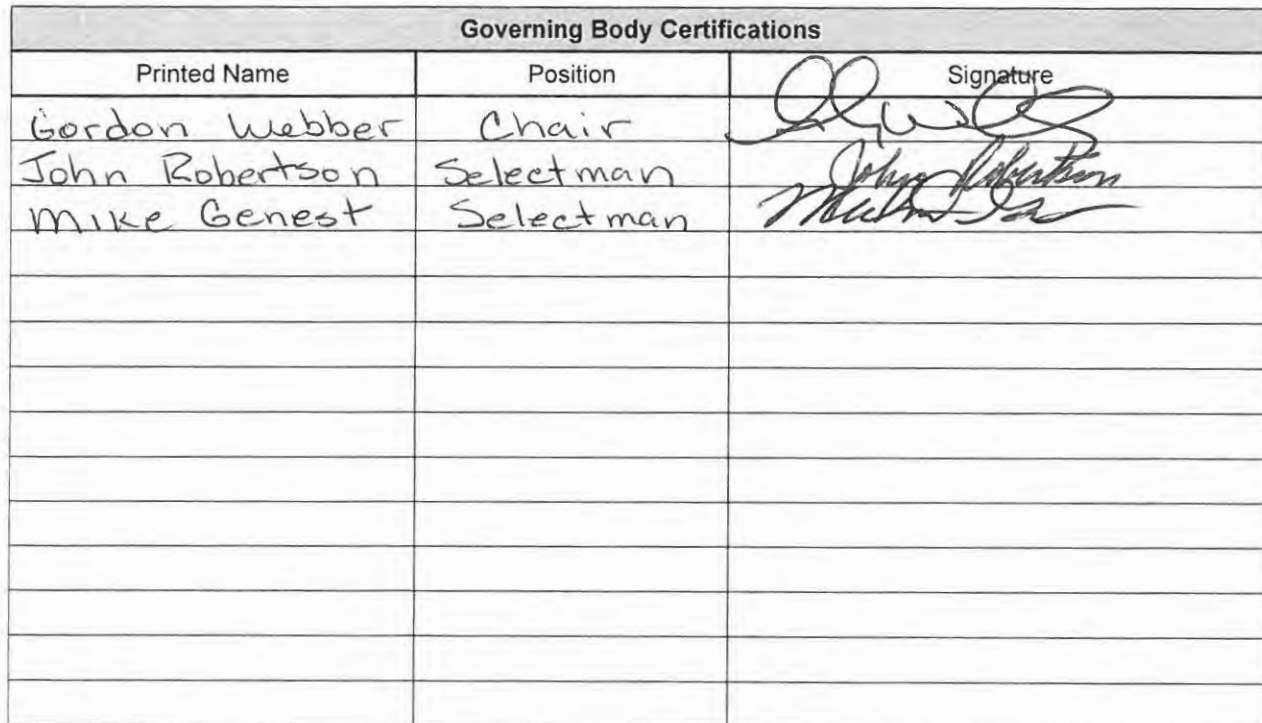 Governing Body Certifications
Printed Name Position Signature
Gordon Webber Chair
John Robertson Selectman John Robertson
Mike Genest Selectman